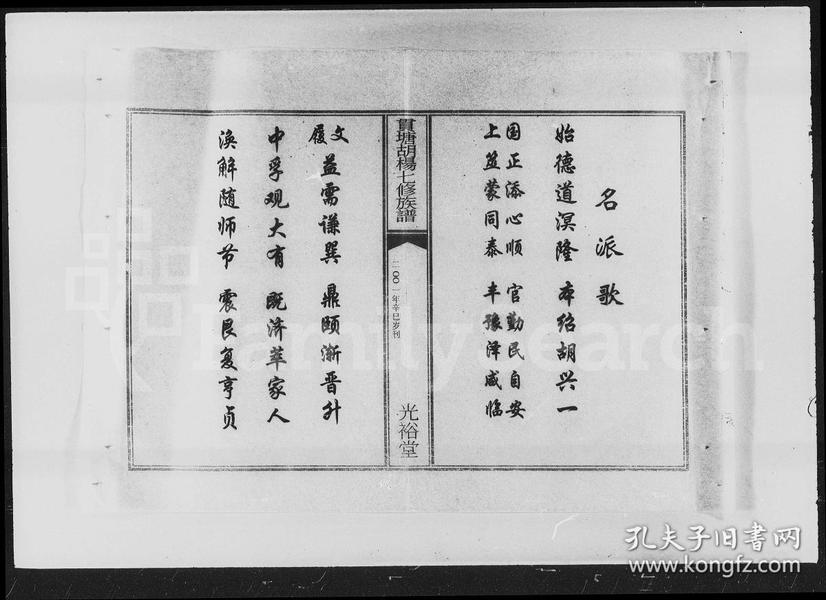 名派歌
始德道溟隆 本绍胡兴一
国正添心顺 官勤民自安
上益蒙同泰 丰豫泽咸临
貫塘胡楊七修族譜
二〇〇一年辛巳岁刊
光裕堂
文
履益需谦巽 鼎颐渐晋升
中孚观大有 既济萃家人
涣解随师节 震艮复亨贞
familysearch
孔夫子旧书网
www.kongfz.com